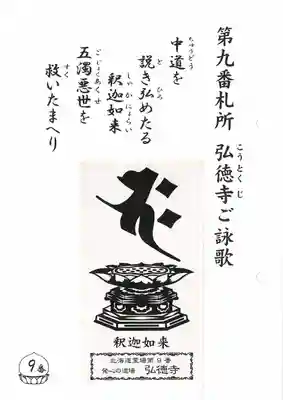 第九番札所 弘徳寺ご詠歌
こうとくじ
中道を
ちゅうどう
説き弘めたる
と ひろ
釈迦如来
しゃかにょらい
五濁悪世を
ごじょくあくせ
救いたまへり
すく
釈迦如来
北海道霊場第9番
発心の道場 弘徳寺
9番